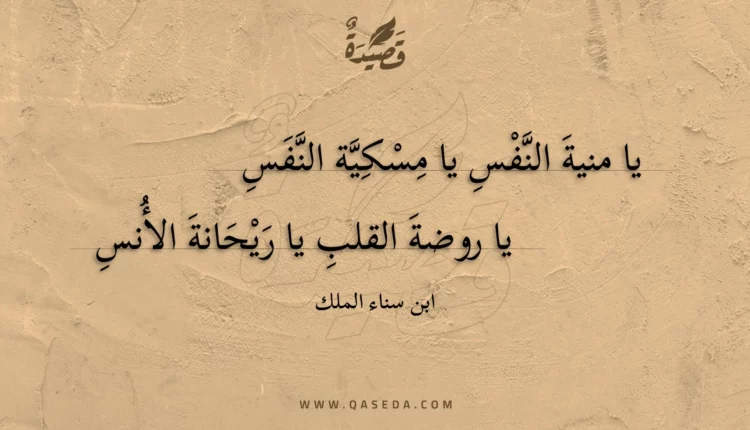 قَصِيْدَةٌ
يا منيةَ النَّفْسِ يا مِسْكِيَّة النَّفَسِ
يا روضةَ القلبِ يا رَيْحَانةَ الأُنسِ
ابن سناء الملك
WWW.QASEDA.COM